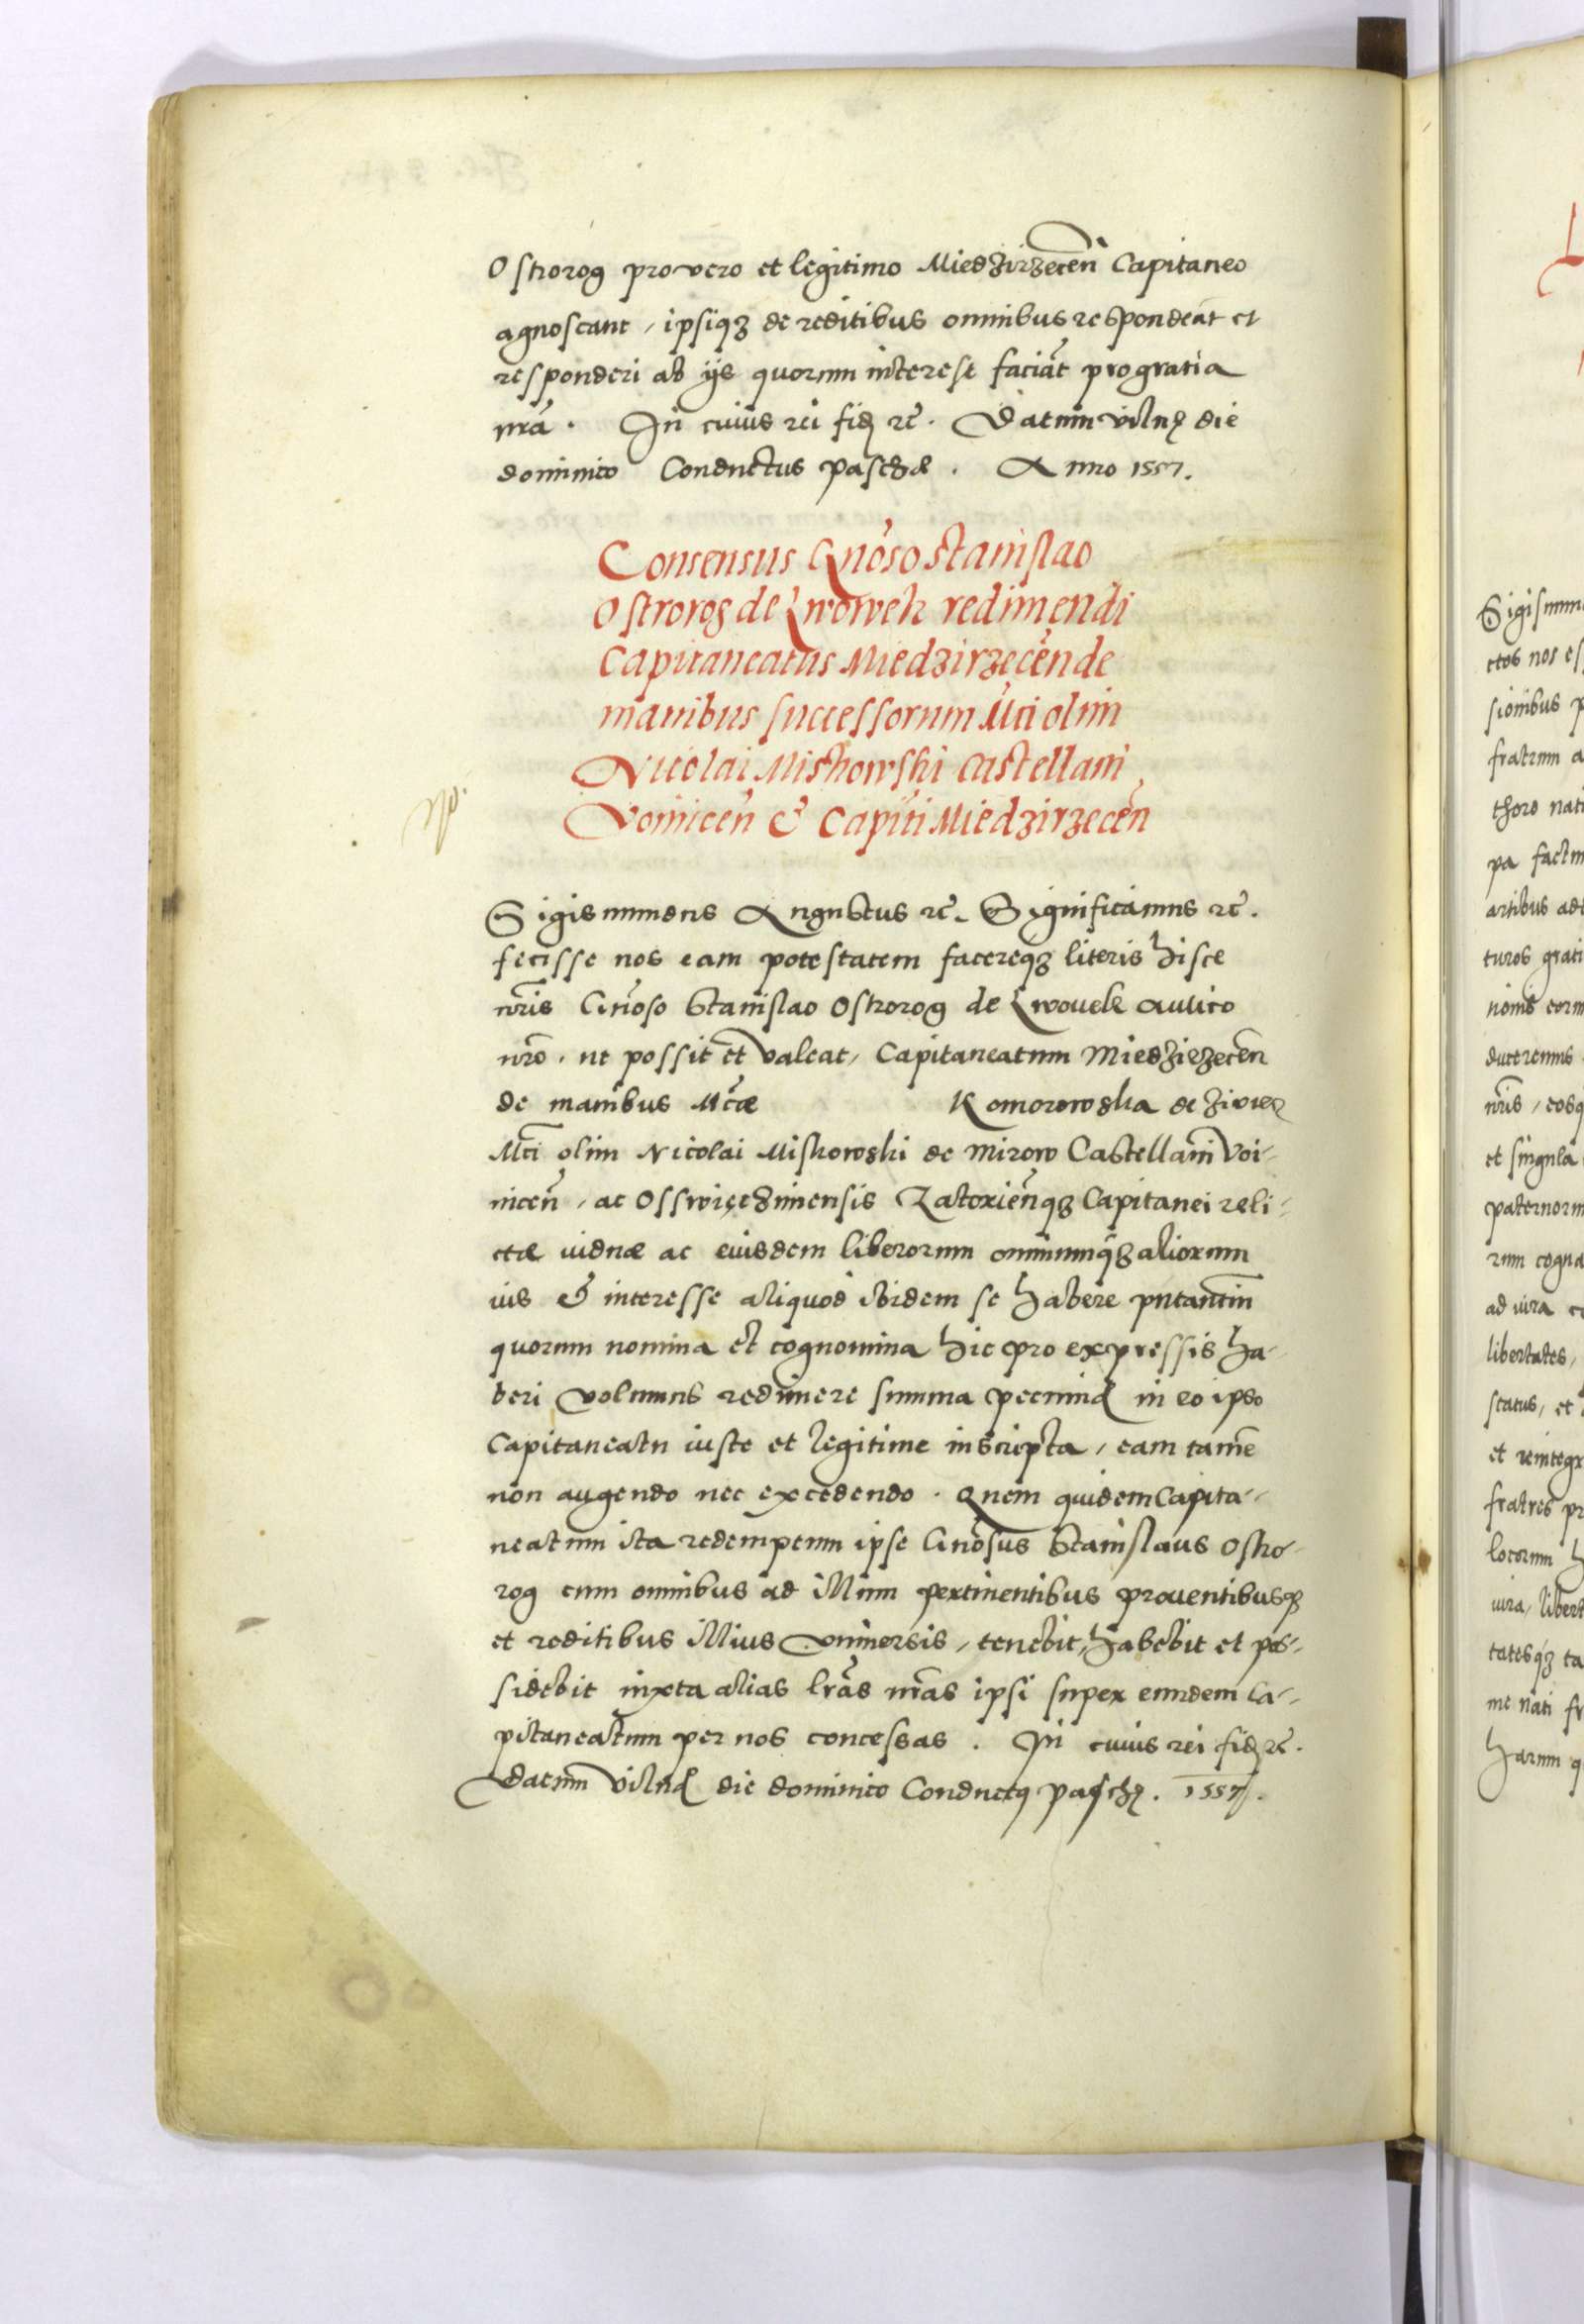 Ostrorog pro vero et legitimo Miedzirzecen̄ Capitaneo
agnoscant, ipsiqȝ de reditibus omnibus respondeāt et
responderi ab ijs quorum interest faciāt pro gratia
nrā. In cuius rei fidē rc̄. Datum Vilnę die
dominico Conductus paschæ. Anno 1557.
Consensus Gn̄oso Stanislao
Ostrorog de Lwowek redimendi
Capitaneatus Miedzirzecēn de
manibus successorum M̄ci olim
Nicolai Miskowski Castellani
Voinicen̄ & Capiti Miedzirzecēn
No.
Sigismundus Augustus rc̄. Significamus rc̄.
fecisse nos eam potestatem facereqȝ literis hisce
nr̄is Gn̄oso Stanislao Ostrorog de Lwouek aulico
nr̄o. ut possit et valeat, Capitaneatum Miedzirzecēn
de manibus M̄cæ Komorowska de Ziviec
M̄ci olim Nicolai Miskowski de Mirow Castellani Voi-
nicen̄, ac Osswięczimensis Zatorien̄qȝ Capitanei reli-
ctæ uiduæ ac eiusdem liberorum omniumqȝ aliorum
ius & interesse aliquod ibidem se habere putantiū
quorum nomina et cognomina hic pro expressis ha-
beri volumus redimere summa pecuniæ in eo ipso
Capitaneatu iuste et legitime inscripta, eam tamē
non augendo nec excedendo. Quem quidem Capita-
neatum ita redemptum ipse Gn̄osus Stanislaus Ostro-
rog cum omnibus ad illum pertinentibus prouentibusqȝ
et reditibus illius vniuersis, tenebit, habebit et pos-
sidebit iuxta alias lrās nrās ipsi super eundem Ca-
pitaneatum per nos concessas. In cuius rei fidē rc̄.
Datum Vilnæ die dominico Conductꝰ paschę. 1557.